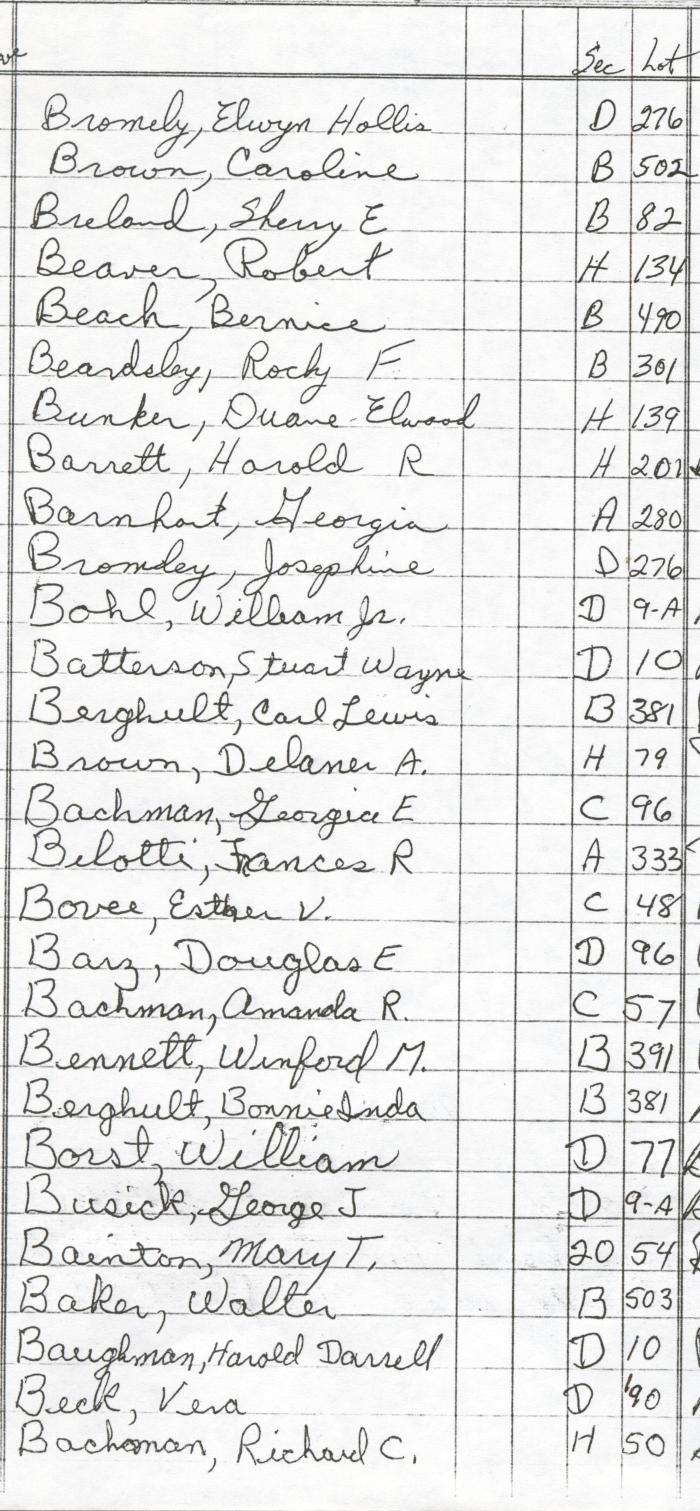 Sec Lot
Bromely, Elwyn Hollis D 276
Brown, Caroline B 502
Breland, Sherry E B 82
Beaver, Robert H 134
Beach, Bernice B 490
Beardsley, Rocky F B 301
Bunker, Duane Elwood H 139
Barrett, Harold R H 201
Barnhart, Georgia A 280
Bromley, Josephine D 276
Bohl, William Jr. D 9-A
Batterson, Stuart Wayne D 10
Berghult, Carl Lewis B 381
Brown, Delaner A. H 79
Bachman, Georgia E C 96
Belotti, Frances R A 333
Bovee, Esther V. C 48
Barz, Douglas E D 96
Bachman, Amanda R. C 57
Bennett, Winford M. B 391
Berghult, Bonnie Inda B 381
Borst, William D 77
Busick, George J D 9-A
Bainton, Mary T. 20 54
Baker, Walter B 503
Baughman, Harold Darrell D 10
Beck, Vera D 90
Bachman, Richard C. H 50